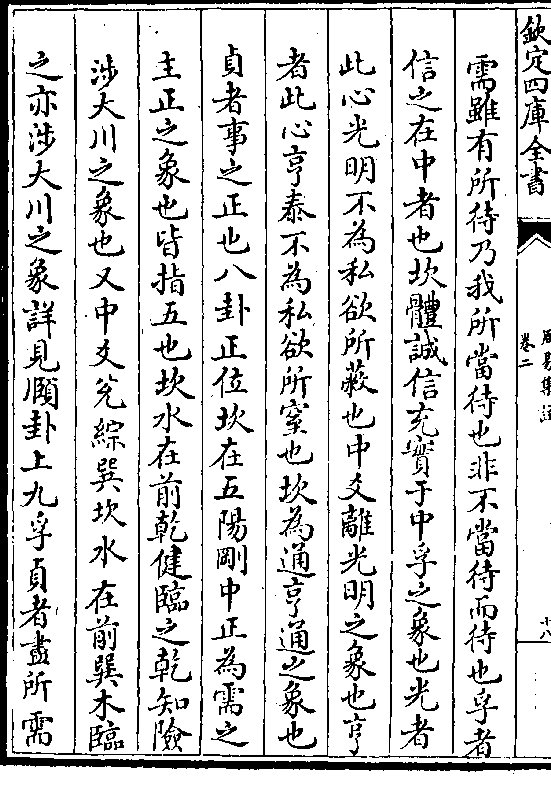 欽定四庫全書
周易集註
卷二
十八
需雖有所待乃我所當待也非不當待而待也孚者
信之在中者也坎體誠信充實于中孚之象也光者
此心光明不為私欲所蔽也中爻離光明之象也亨
者此心亨泰不為私欲所窒也坎為通亨通之象也
貞者事之正也八卦正位坎在五陽剛中正為需之
主正之象也皆指五也坎水在前乾健臨之乾知險
涉大川之象也又中爻兊綜巽坎水在前巽木臨
之亦涉大川之象詳見頤卦上九孚貞者盡所需